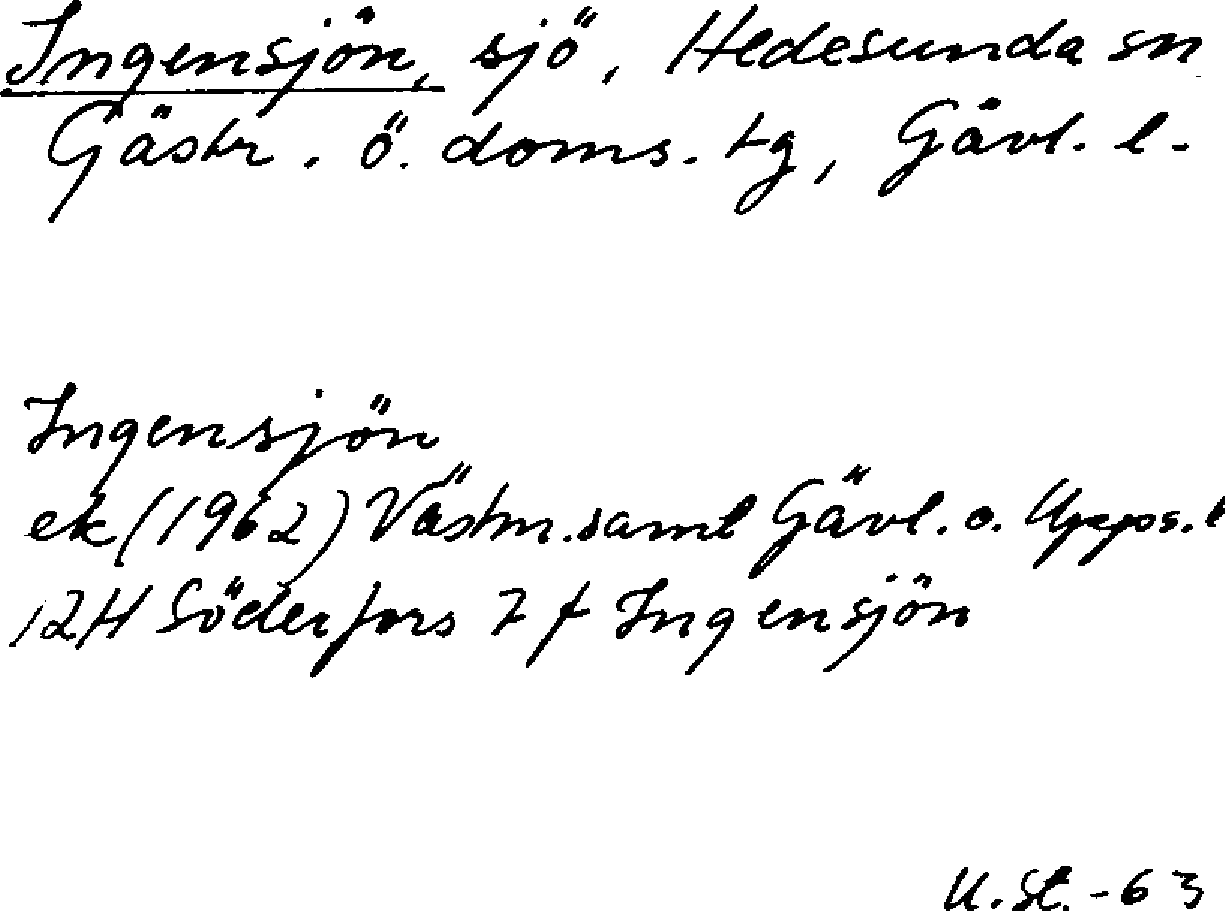 Ingensjön, sjö, Hedesunda sn
Gästr. ö. doms. tg, Gävl. l.
Ingensjön
ek (1962) Västm. samt Gävl. o. Upps. l
12H Söderfors 7 f Ingensjön
U. St. -63